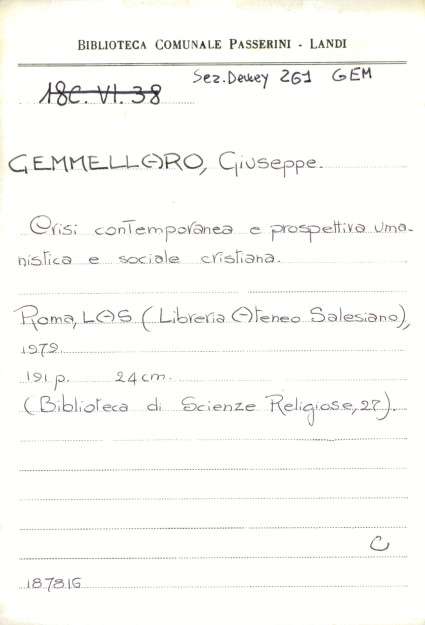 BIBLIOTECA COMUNALE PASSERINI - LANDI
Sez. Dewey 261 GEM
18C. VI. 38
GEMMELLARO, Giuseppe.
Crisi contemporanea e prospettiva uma-
nistica e sociale cristiana.
Roma, LAS (Libreria Ateneo Salesiano),
1979.
191 p. 24 cm.
(Biblioteca di Scienze Religiose, 27).
C
187816